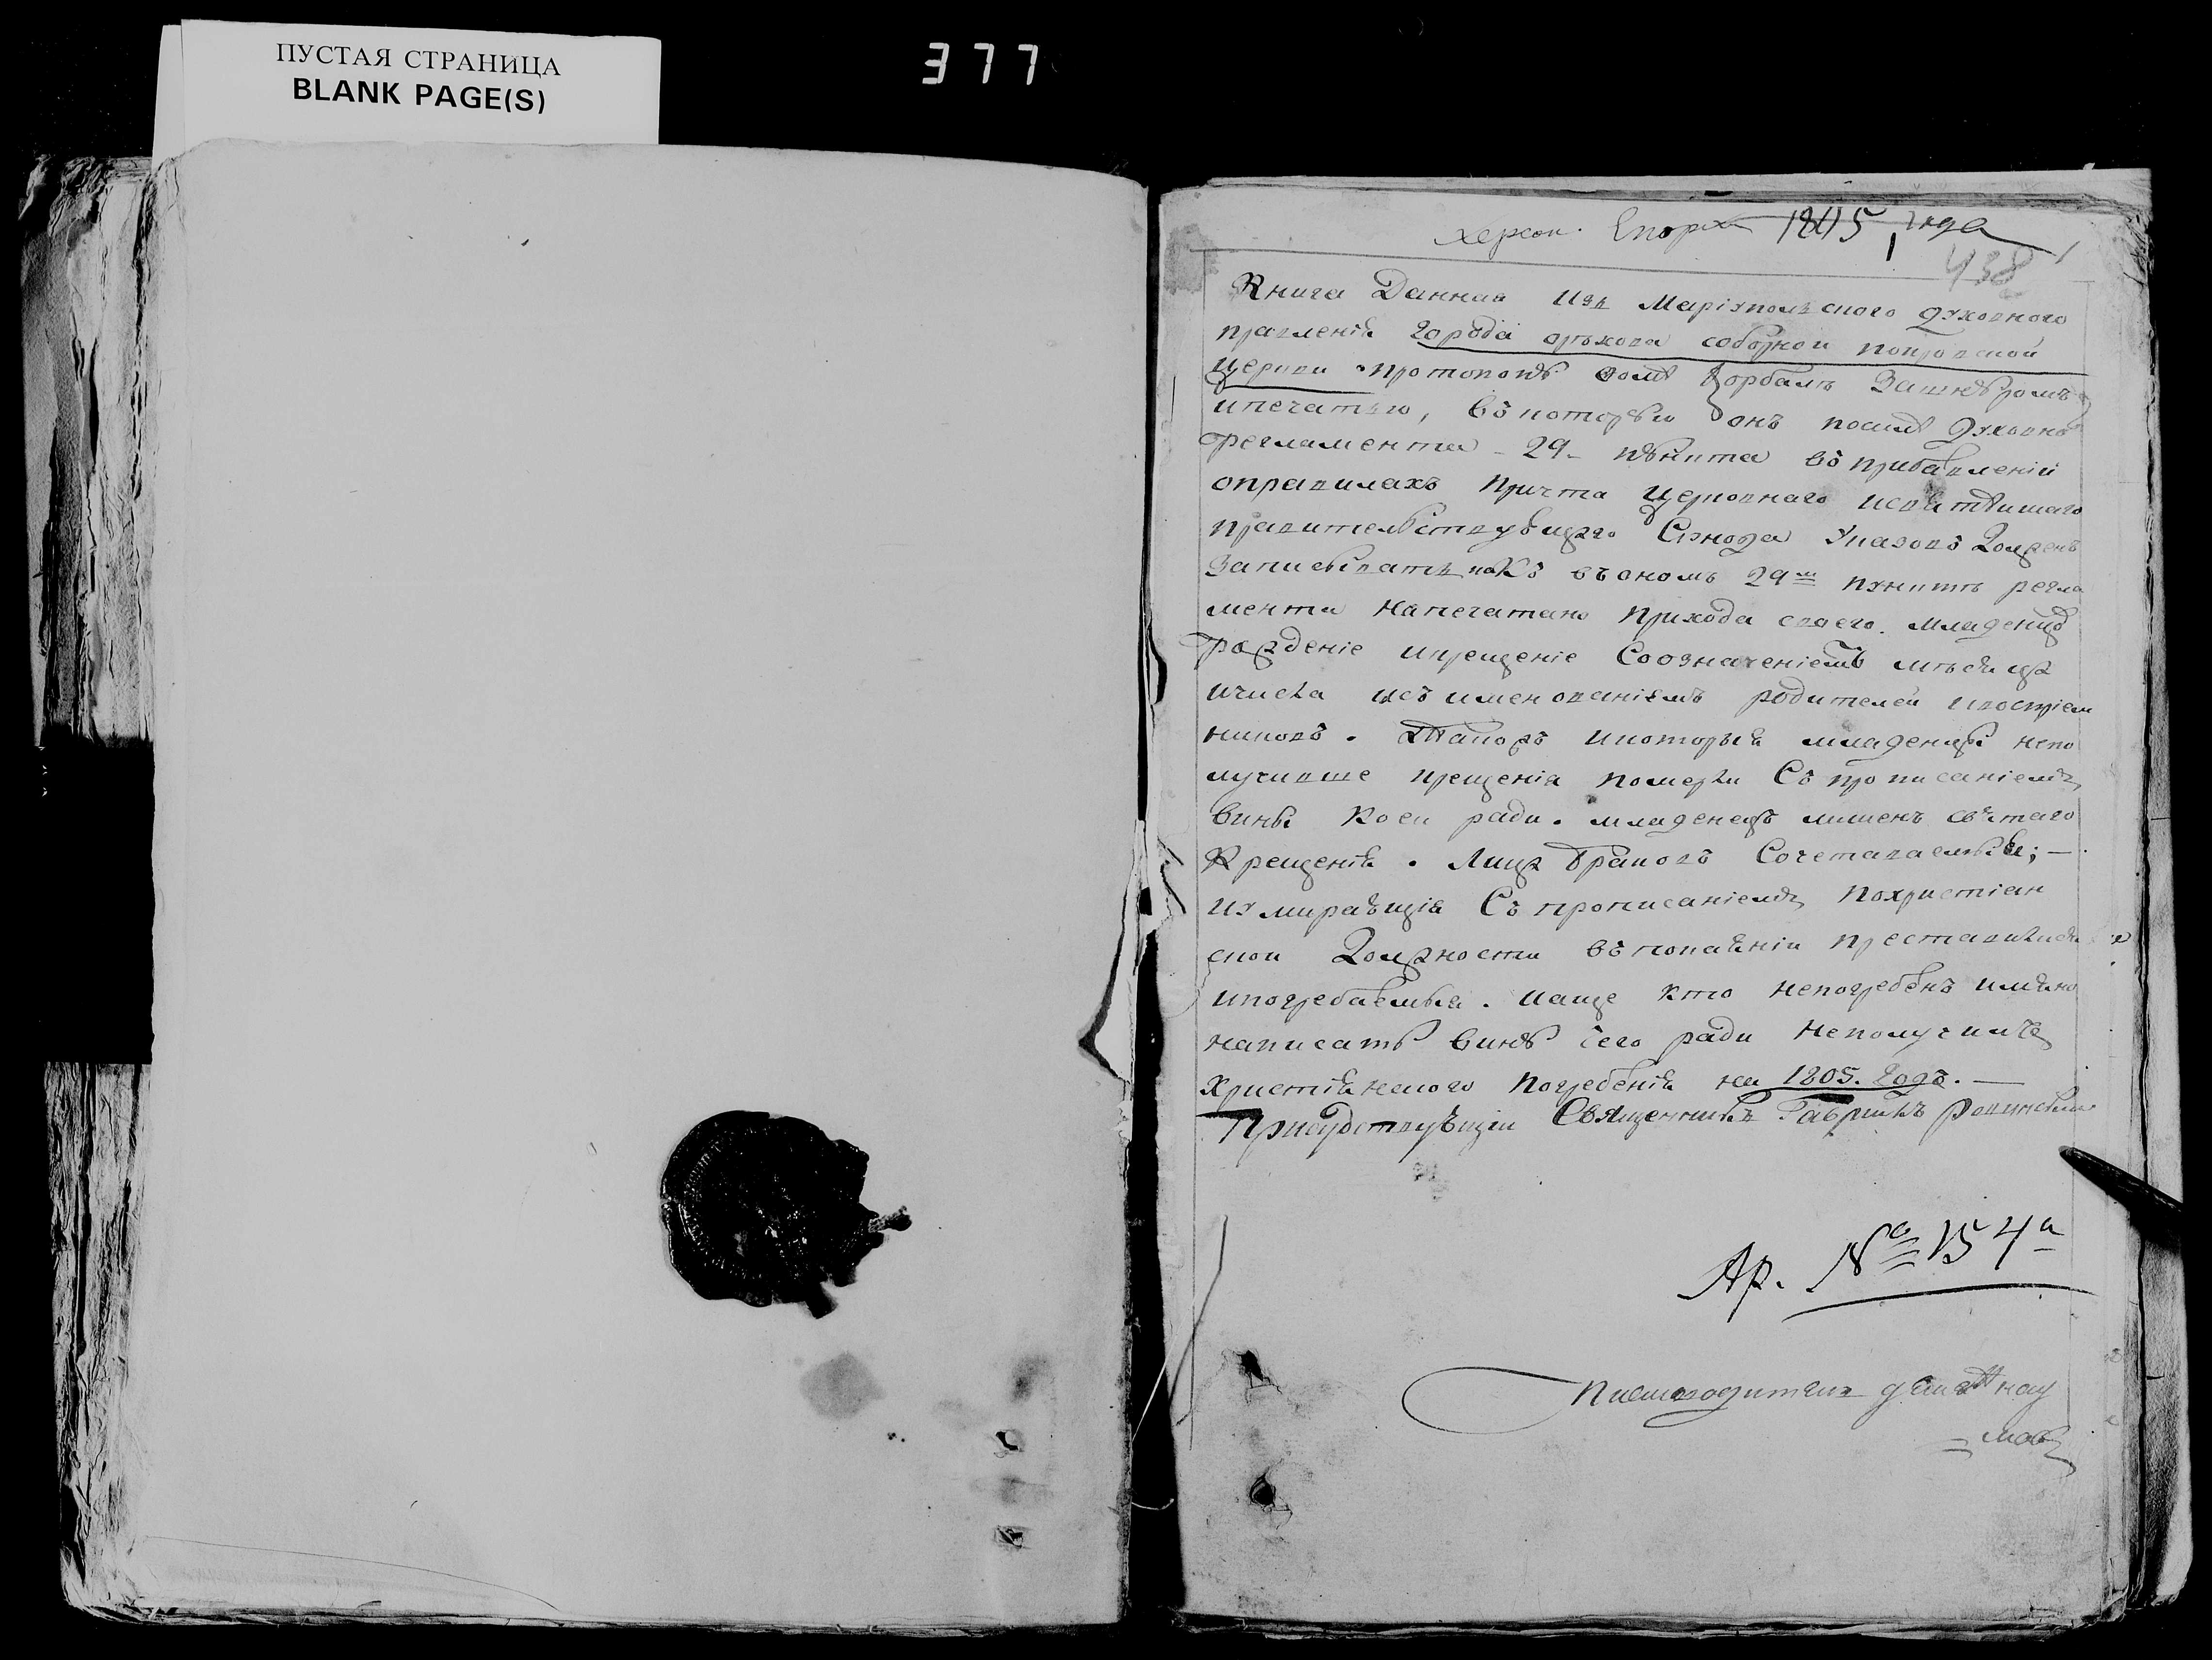 ПУСТАЯ СТРАНИЦА
BLANK PAGE(S)
377
херсон. Епарх 1805 года
438
Книга Данная Изъ Маріупольского духовного
правленія города орѣхова соборной покровской
церкви протопопу за шнуромъ
ипечатью, въ которую онъ посилѣ духовнъ
регламента 29 пункта въ прибавленіи
оправилахъ причта церковнаго исвятѣйшаго
правительствующаго Сѵнода Указовъ Долженъ
Записывать какъ въ ономъ 29м пунктѣ регла
мента напечатано прихода своего младенцовъ
рожденіе икрещеніе Соозначеніемъ мѣсяца
ичисла исъименованіемъ родителей ивоспріем
никовъ. Такожъ икоторыя младенцы непо
лучивше крещенія померли Съ прописаніемъ
вины Коея ради младенецъ лишенъ святаго
Крещенія. Лица браковъ Сочетаваемыя;
иумирающія Съ прописаніемъ похристіан
ской Должности въ покаяніи преставльшияся
ипогребаемыя. иаще кто непогребенъ имянно
написать вину чего ради неполучилъ
христіянского погребенія на 1805. годъ.
Присудствующій Священникъ Гавриилъ
Ар. № 154а
Писмоводитель